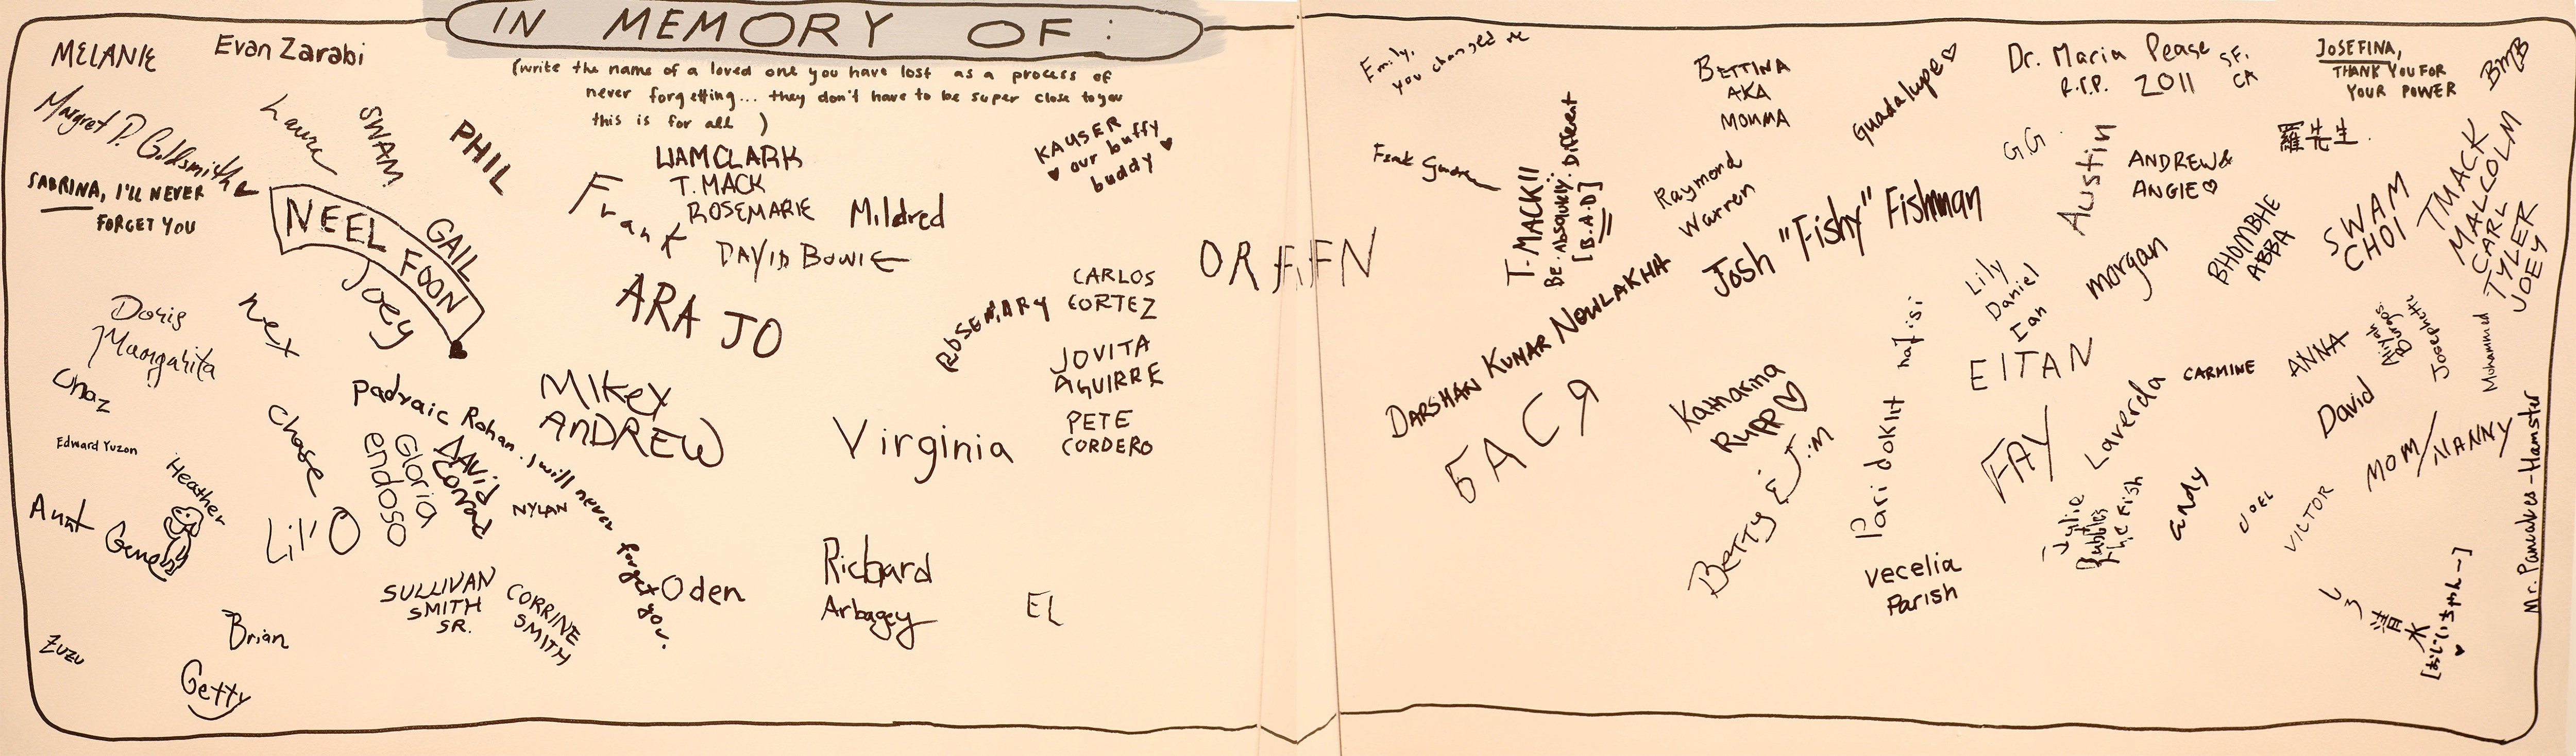 IN MEMORY OF:
(write the name of a loved one you have lost as a process of
never forgetting... they don't have to be super close to you
this is for all )
MELANIE
Evan Zarabi
Margret P. Goldsmith
Laura
SWAM
PHIL
SABRINA, I'LL NEVER
FORGET YOU
NEEL FOON
GAIL
Joey
LIAM CLARK
T. MACK
ROSEMARIE
Frank
Mildred
DAVID BOWIE
KAUSER
♥ our buffy ♥
buddy
ARA JO
Doris
Margarita
Nex
Chaz
Edward Yuzon
Heather
Aunt Gene
Chase
Lil' O
Padraic Rohan. I will never forget you.
Gloria
endoso
DAVID
Conrad
NYLAN
MIKEY
ANDREW
ROSEMARY
CARLOS
CORTEZ
JOVITA
AGUIRRE
PETE
CORDERO
Virginia
SULLIVAN
SMITH
SR.
CORRINE
SMITH
Oden
Richard
Arbagey
EL
Brian
Zuzu
Getty
Emily,
you changed me
BETTINA
AKA
MOMMA
Guadalupe ♡
Dr. Maria Pease SF.
R.I.P. 2011 CA
JOSEFINA,
THANK YOU FOR
YOUR POWER
BMB
T. MACK!!
BE. ABSOLUTELY. DIFFERENT
[B.A.D]
Raymond
Warren
GG
Austin
ANDREW &
ANGIE ♡
羅先生.
Josh "Fishy" Fishman
DARSHAN KUMAR NOWLAKHA
BHOMBHE
ABBA
SWAM
CHOI
TMACK
MALCOLM
CARL
TYLER
JOEY
Lily
Daniel
Ian
morgan
EITAN
CARMINE
ANNA
Josephette
Mohammed
Katharina
Rupp ♡
Pari dokht hafisi
FAY
Laverda
David
MOM/NANNY
Betty & J.M
Julie
Bubbles
the Fish
andy
JOEL
VICTOR
vecelia
Parish
Mr. Pancakes - Hamster
清水
[おじいちゃん一]
♥